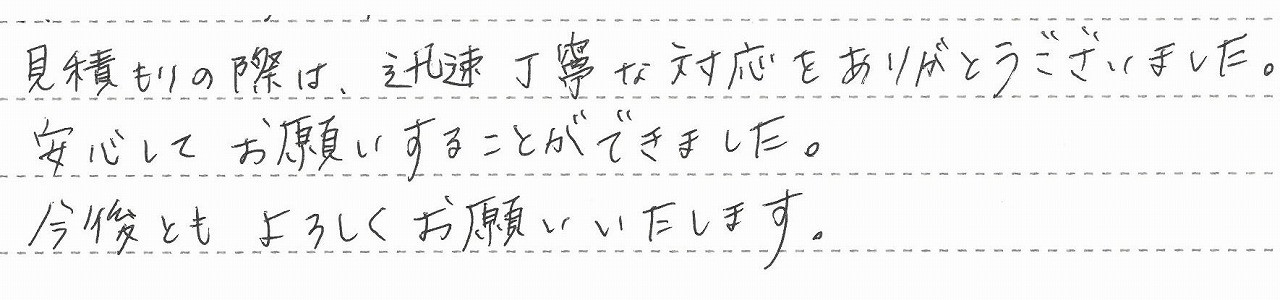 見積もりの際は、迅速丁寧な対応をありがとうございました。
安心してお願いすることができました。
今後ともよろしくお願いいたします。